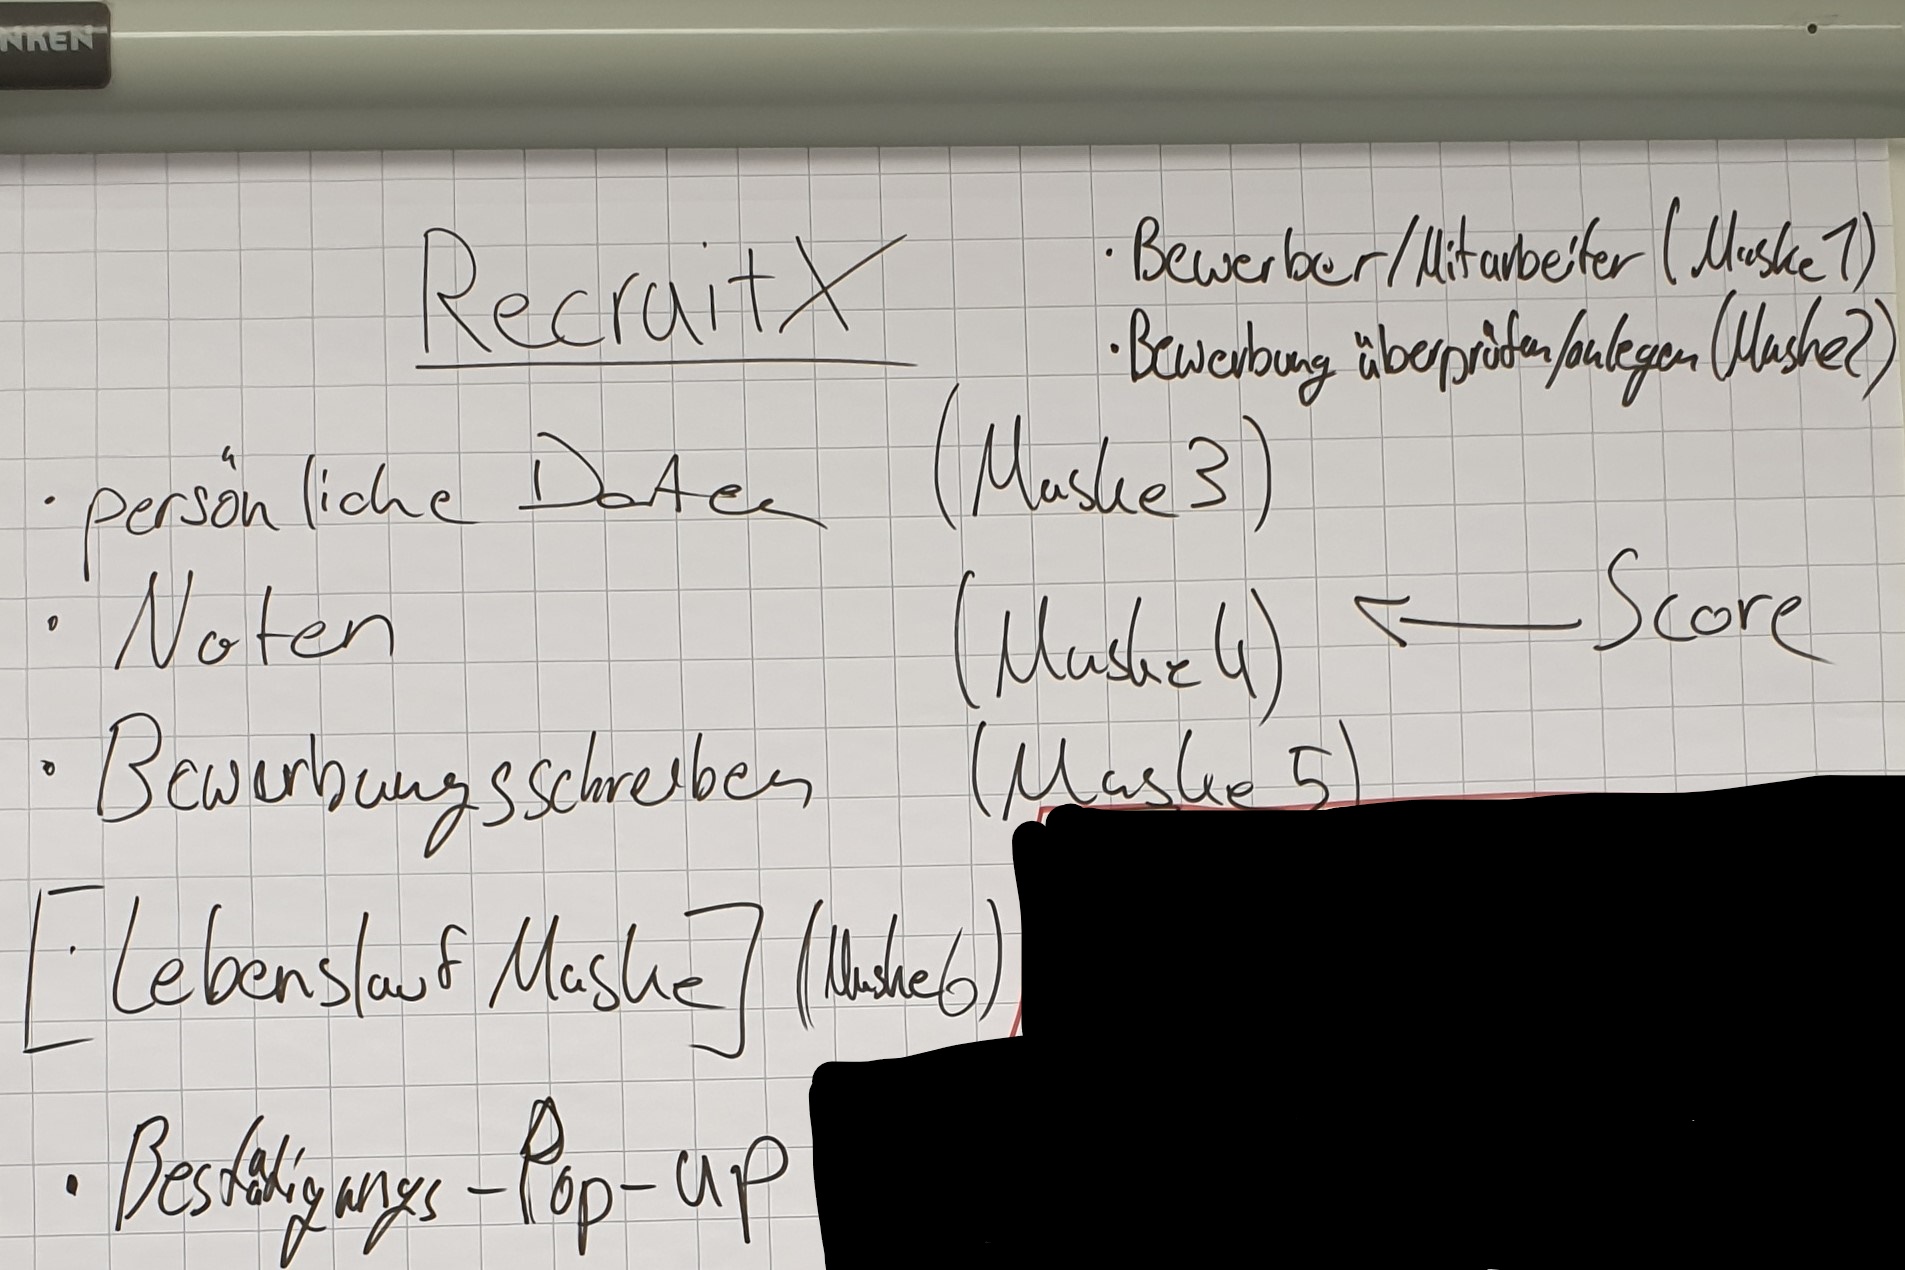 NKEN
RecruitX
· Bewerber/Mitarbeiter (Maske 1)
· Bewerbung überprüfen/anlegen (Maske 2)
· persönliche Daten (Maske 3)
· Noten (Maske 4) ← Score
· Bewerbungsschreiben (Maske 5)
[· Lebenslauf Maske] (Maske 6)
· Bestätigungs-Pop-up